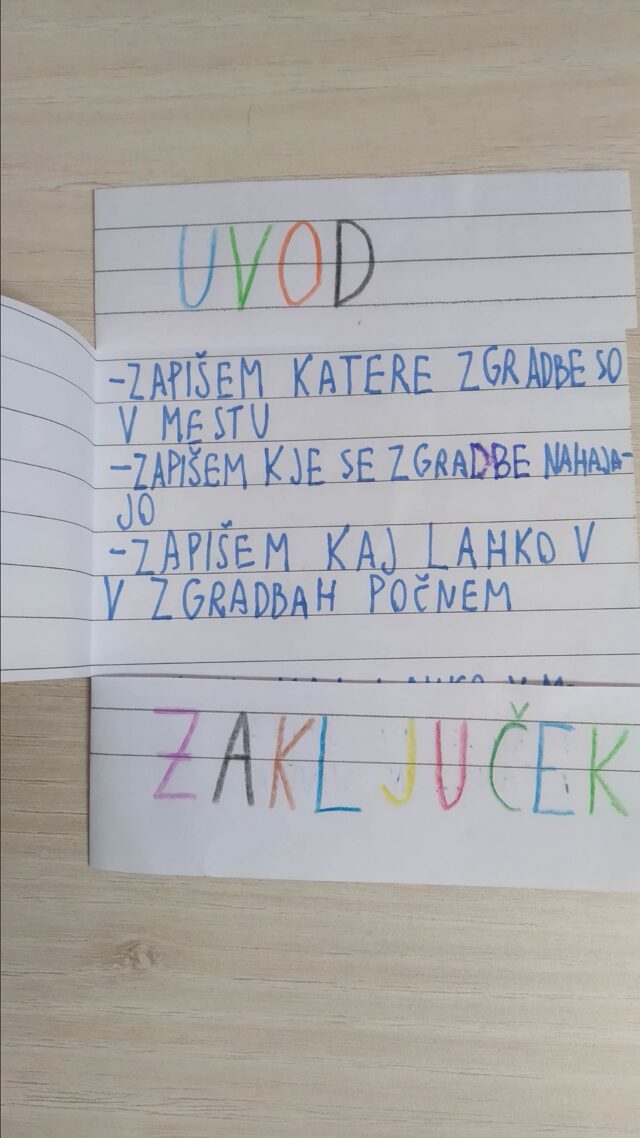 UVOD
-ZAPIŠEM KATERE ZGRADBE SO
V MESTU
-ZAPIŠEM KJE SE ZGRADBE NAHAJA-
JO
-ZAPIŠEM KAJ LAHKO V
V ZGRADBAH POČNEM
ZAKLJUČEK